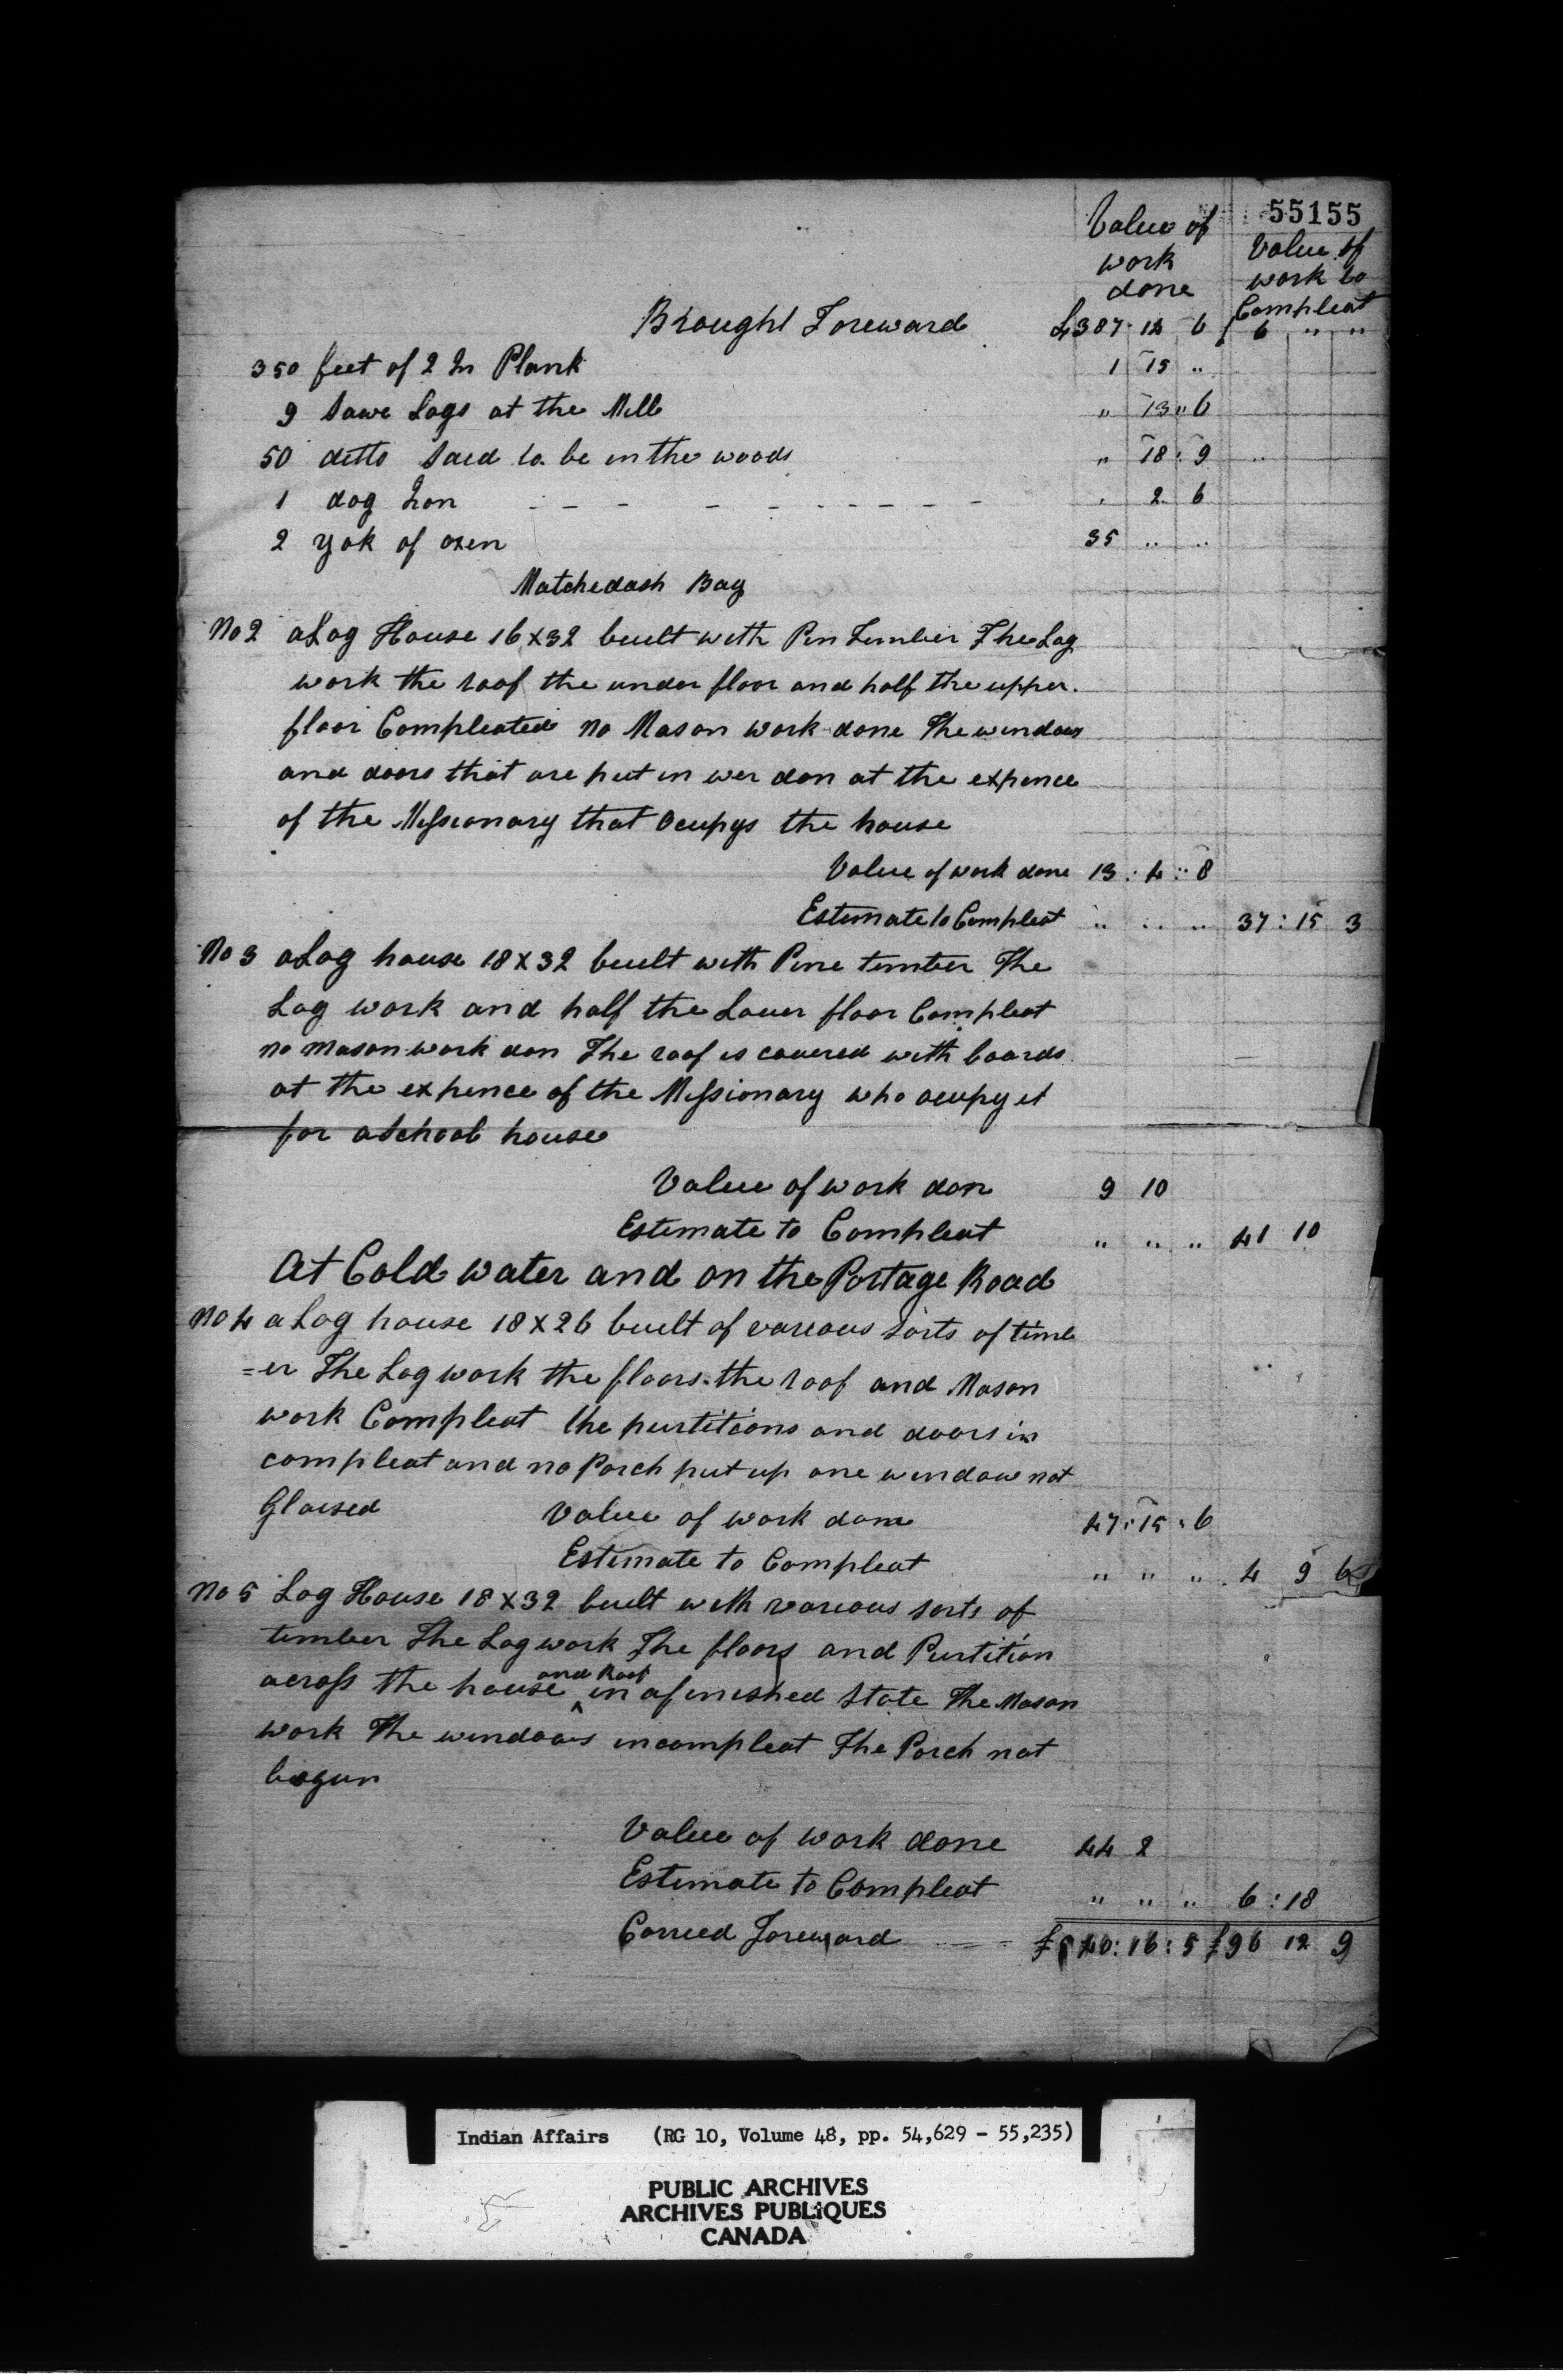 55155
Value of work done
Value of work to Compleat
Brought Foreward £387 12 6 £ 6 " "
350 feet of 2 In Plank 1 15 "
9 Sawe Logs at the Mill " 13 " 6
50 ditto Said to be in the woods " 18 : 9
1 dog Iron - - - - - - - - - - " 2 6
2 yok of oxen 35 " "
Matchedash Bay
No 2 a Log House 16 x 32 built with Pin Timber The Log
work the roof the under floor and half the upper
floor Compleated no Mason work done The windows
and doors that are put in wer don at the expence
of the Missionary that Ocupys the house
Value of work done 13 : 4 : 8
Estimate to Compleat " " " 37 : 15 3
No 3 a Log house 18 x 32 built with Pine timber The
Log work and half the Lower floor Compleat
no mason work don The roof is covered with boards
at the expence of the Missionary who ocupy it
for a School house
Value of work don 9 10
Estimate to Compleat " " " 41 10
At Cold water and on the Portage Road
No 4 a Log house 18 x 26 built of various Sorts of timb
=er The Log work the floors the roof and Mason
work Compleat the partitions and doors in
compleat and no Porch put up one window not
Glaised Value of work done 47 : 15 : 6
Estimate to Compleat " " " 4 9 6
No 5 Log House 18 x 32 built with various sorts of
timber The Log work The floors and Partition
across the house and Roof in a finished State The Mason
work The windows incompleat The Porch not
begun
Value of work done 44 2
Estimate to Compleat " " " 6 : 18
Carried Foreward £540 : 16 : 5 £96 12 9
Indian Affairs (RG 10, Volume 48, pp. 54,629 - 55,235)
PUBLIC ARCHIVES
ARCHIVES PUBLIQUES
CANADA